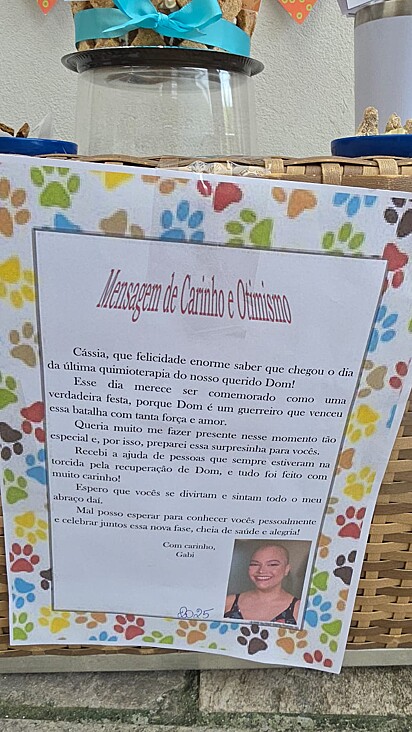 Mensagem de Carinho e Otimismo
Cássia, que felicidade enorme saber que chegou o dia
da última quimioterapia do nosso querido Dom!
Esse dia merece ser comemorado como uma
verdadeira festa, porque Dom é um guerreiro que venceu
essa batalha com tanta força e amor.
Queria muito me fazer presente nesse momento tão
especial e, por isso, preparei essa surpresinha para vocês.
Recebi a ajuda de pessoas que sempre estiveram na
torcida pela recuperação de Dom, e tudo foi feito com
muito carinho!
Espero que vocês se divirtam e sintam todo o meu
abraço daí.
Mal posso esperar para conhecer vocês pessoalmente
e celebrar juntos essa nova fase, cheia de saúde e alegria!
Com carinho,
Gabi
2025